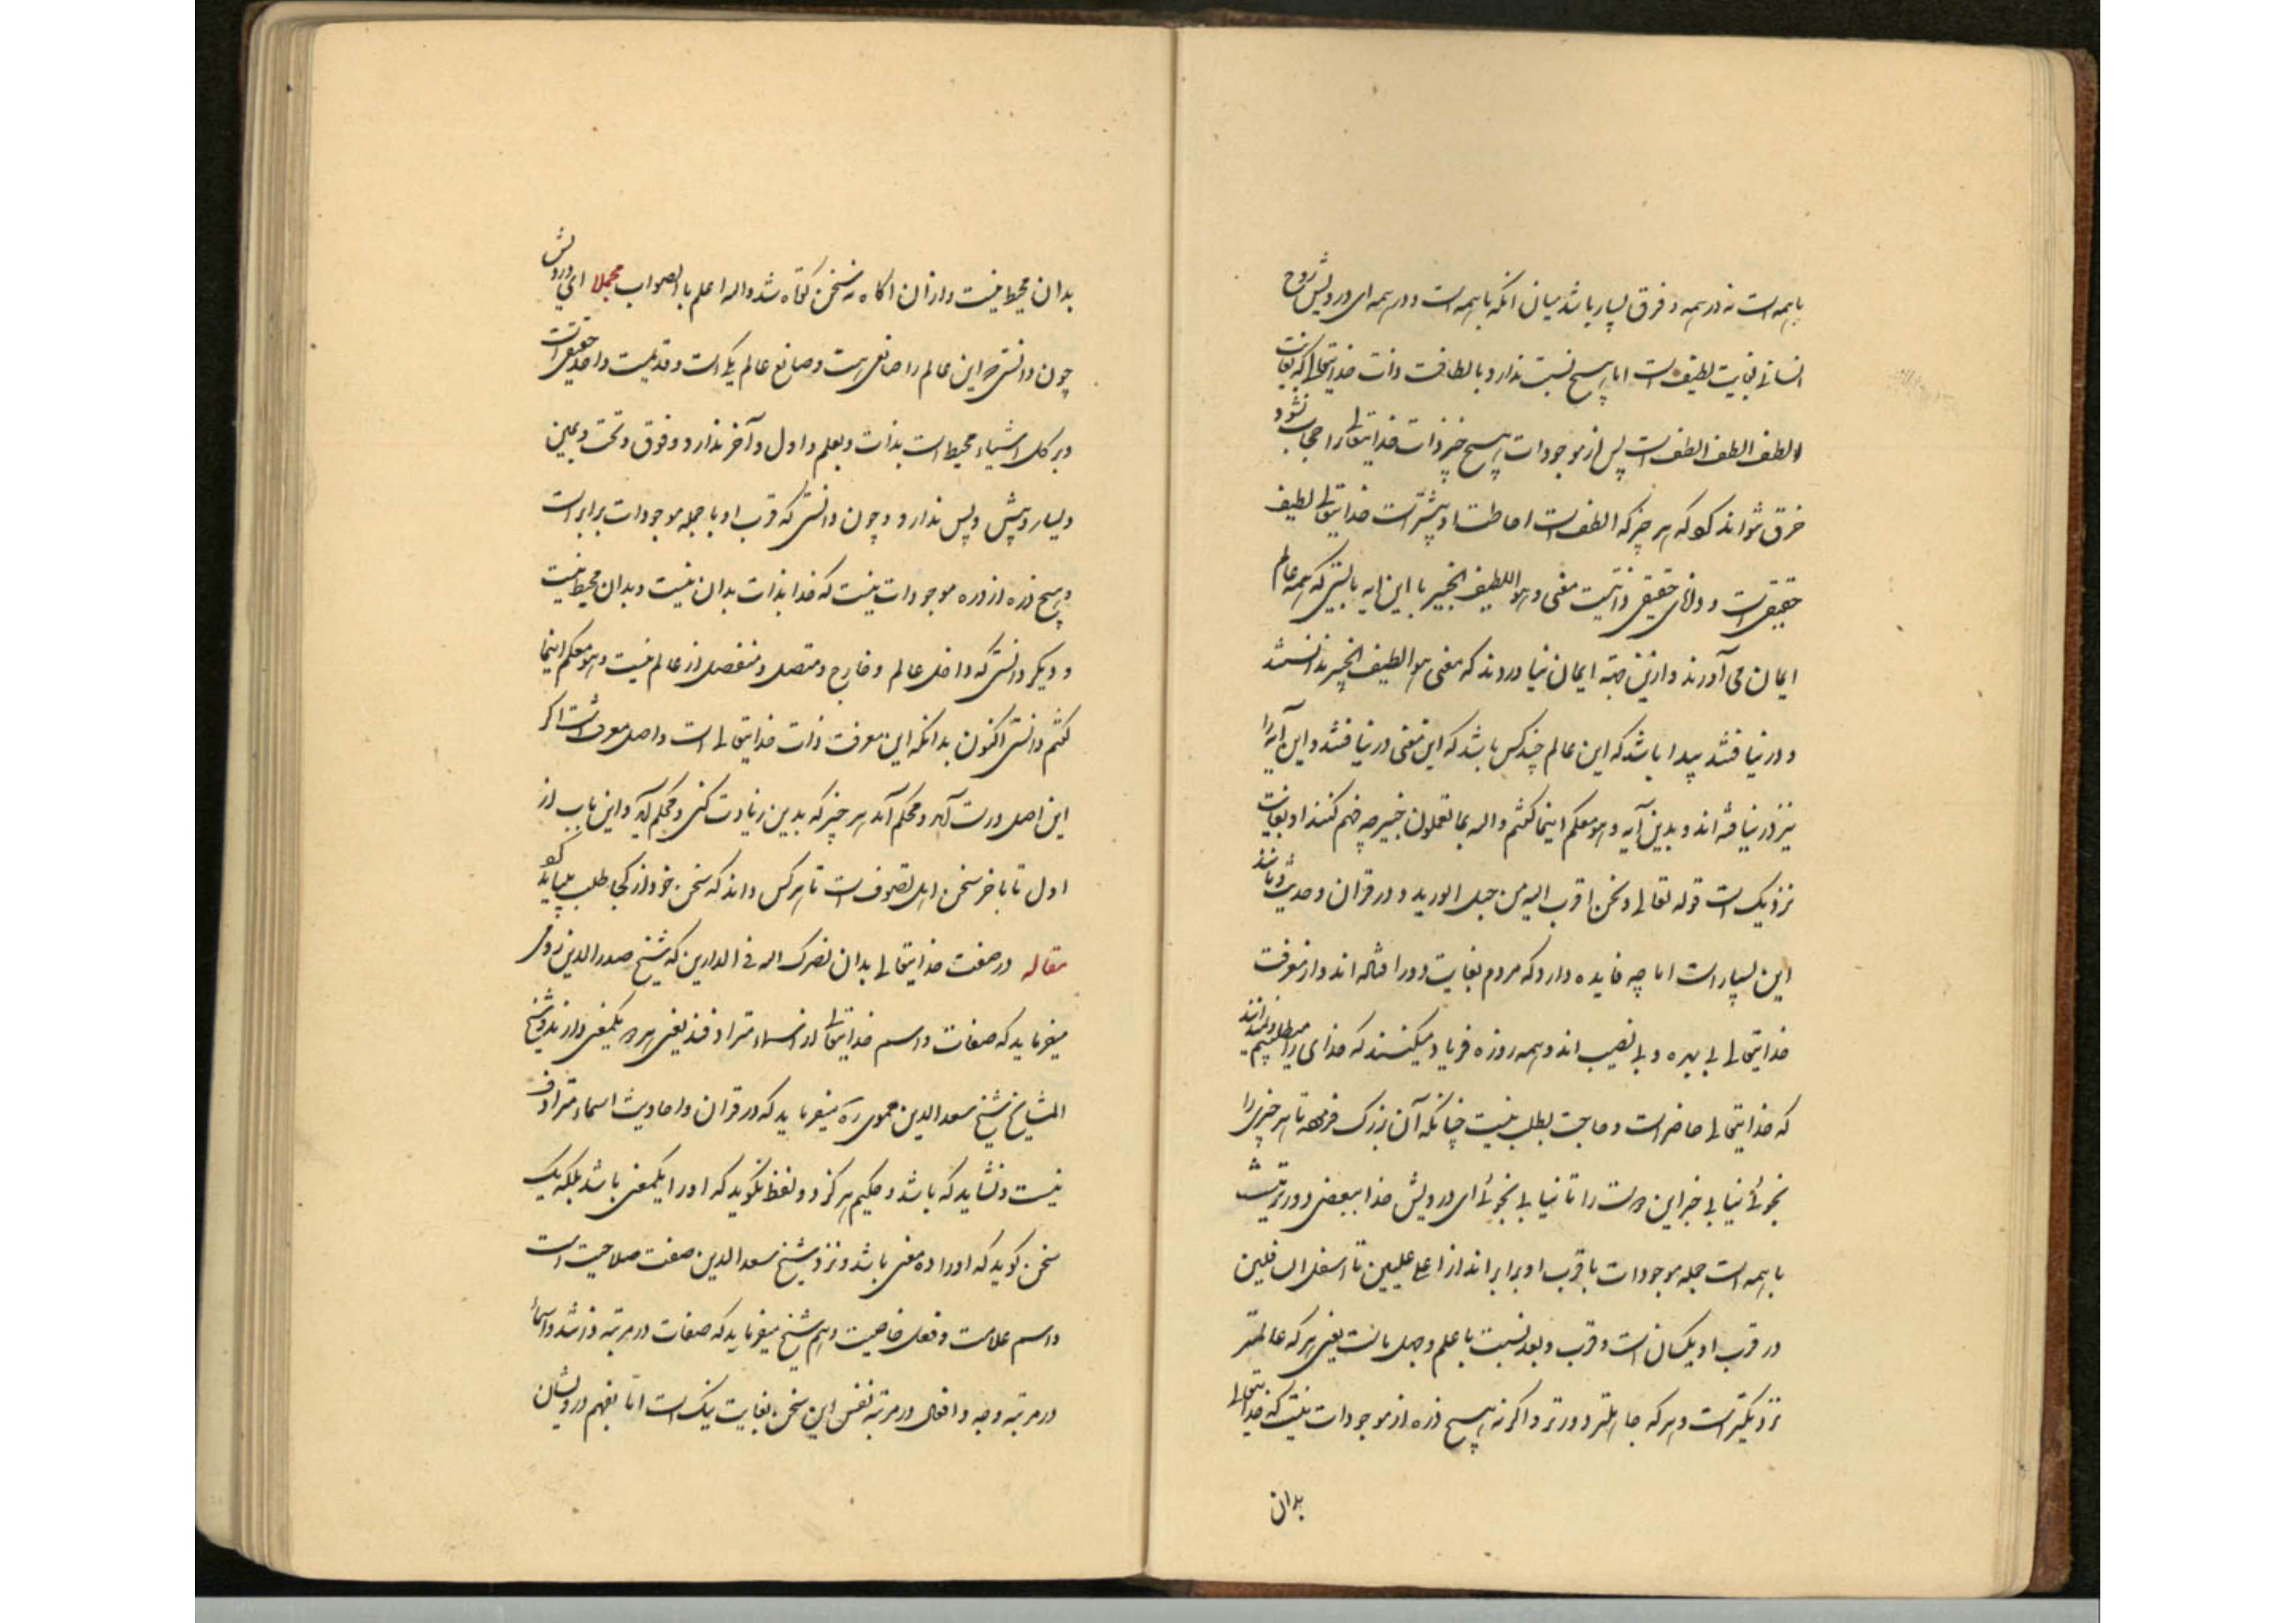 باهمه است نه در همه و فرق بسیار باشد میان انکه باهمه است و در همه ای درویش روح
انسانی بغایت لطیف است اما هیچ نسبت ندارد با لطافت ذات خدایتعالی که بغایت
الطف الطف الطف است پس از موجودات هیچ چیز ذات خدایتعالی را حجاب نشود
خرق نتواند کرد که هر چیز که الطف است احاطت او بیشتر است خدایتعالی لطیف
حقیقی است و دانای حقیقی دانیست معنی و هو اللطیف الخبیر با این ایه بایستی که همه عالم
ایمان می آورند و ازین جهته ایمان نیاوردند که معنی هو الطیف الخبیر ندانستند
و در نیافتند پیدا باشد که این عالم چند کس باشد که این معنی در نیافتند و این آیه را
نیز در نیافته اند و بدین آیه و هو معکم اینما کنتم واله بما تعملون خبیر چه فهم کنند او بغایت
نزدیک است قوله تعالی و نحن اقرب الیه من حبل الورید و در قران و حدیث مانند
این بسیار است اما چه فایده دارد که مردم بغایت دور افتاده اند و از معرفت
خدایتعالی بی بهره و بی نصیب اند و همه روزه فریاد میکنند که خدای را میطلبیم و نمیدانند
که خدایتعالی حاضر است و حاجت بطلب نیست چنانکه آن بزرک فرموده تا هر چیزی را
نجوئی نیابی جز این دوست را تا نیابی نجوئی ای درویش خدا ببعضی دور نیست
باهمه است جمله موجودات با قرب او برابر اند از اعلی علیین تا اسفل السافلین
در قرب او یکسان است و قرب و بعد نسبت با علم و جهل ماست یعنی هر که عالمتر
نزدیکتر است و هر که جاهلتر دورتر و اکر نه هیچ ذره از موجودات نیست که خدایتعالی
بدان
بدان محیط نیست و از ان اکاه نه سخن کوتاه شد واله اعلم بالصواب مجملا ای درویش
چون دانستی که این عالم را صانعی هست و صانع عالم یکی است و قدیمست و احد حقیقی است
و بر کل اشیاء محیط است بذات و بعلم و اول و آخر ندارد و فوق و تحت و یمین
و یسار و پیش و پس ندارد و چون دانستی که قرب او با جمله موجودات برابر است
و هیچ ذره از ذره موجودات نیست که خدا بذات بدان نیست و بدان محیط نیست
و دیکر دانستی که داخل عالم و خارج و متصل و منفصل از عالم نیست و هو معکم اینما
کنتم دانستی اکنون بدانکه این معرفت ذات خدایتعالی است و اصل معرفت است اکر
این اصل درست آید و محکم آید هر چیز که بدین زیادت کنی و محکم آید و این باب از
اول تا باخر سخن اهل تصوف است تا هر کس داند که سخن خود از کجا طلب میباید کرد
مقاله در صفت خدایتعالی بدان نصرک اله فی الدارین که شیخ صدرالدین رومی
میفرماید که صفات و اسم خدایتعالی از اسماء مترادفند یعنی هر دو یکمعنی دارند و شیخ
المشایخ شیخ سعدالدین حموی ره میفرماید که در قران و احادیث اسماء مترادف
نیست و نشاید که باشد و حکیم هرکز دو لفظ نکوید که اورا یکمعنی باشد بلکه یک
سخن کوید که اورا ده معنی باشد و نزد شیخ سعدالدین صفت صلاحیت است
و اسم علامت و فعل خاصیت و هم شیخ میفرماید که صفات در مرتبه ذاتند و اسماء
در مرتبه وجه و افعال در مرتبه نفس این سخن بغایت نیک است اما بفهم درویشان